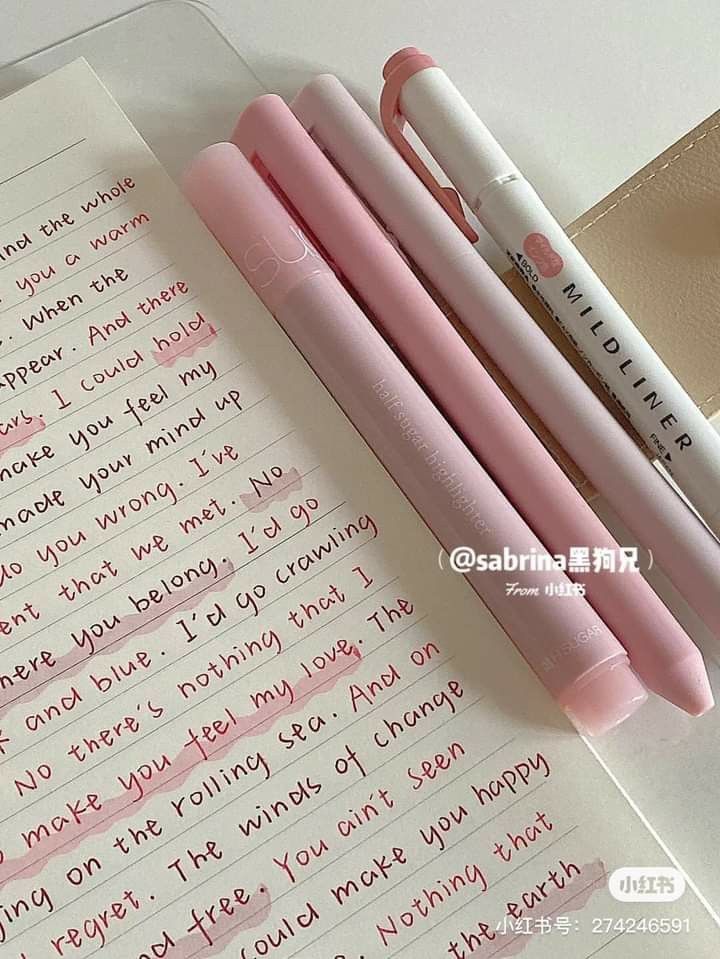 ind the whole
you a warm
. When the
appear. And there
ars. I could hold
make you feel my
made your mind up
do you wrong. I've
ent that we met. No
here you belong. I'd go
and blue. I'd go crawling
No there's nothing that I
make you feel my love. The
ging on the rolling sea. And on
regret. The winds of change
nd free. You ain't seen
could make you happy
Nothing that
the earth
half sugar highlighter
SUGAR
BOLD
MILDLINER
FINE
(@sabrina黑狗兄)
From 小红书
小红书
小红书号：274246591